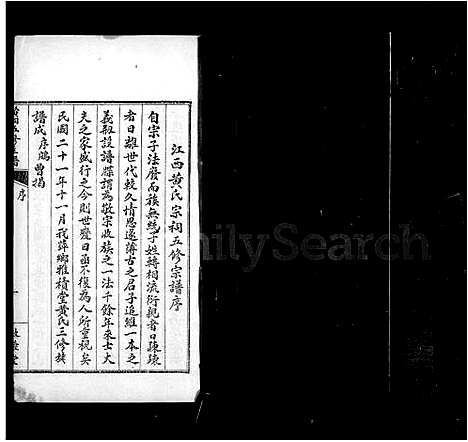 江西黄氏宗祠五修宗譜序
自宗子法廢而族無統子姓轉相流衍親者日疎疎
者日離世代較久情恩遂薄古之君子追維一本之
義疏設譜牒謂為敬宗收族之一法千餘年來士大
夫之家盛行之今則世變日亟不復為人所重視矣
民國二十一年十一月我萍鄉雅積堂黄氏三修族
譜成序端曾揭
序
FamilySearch